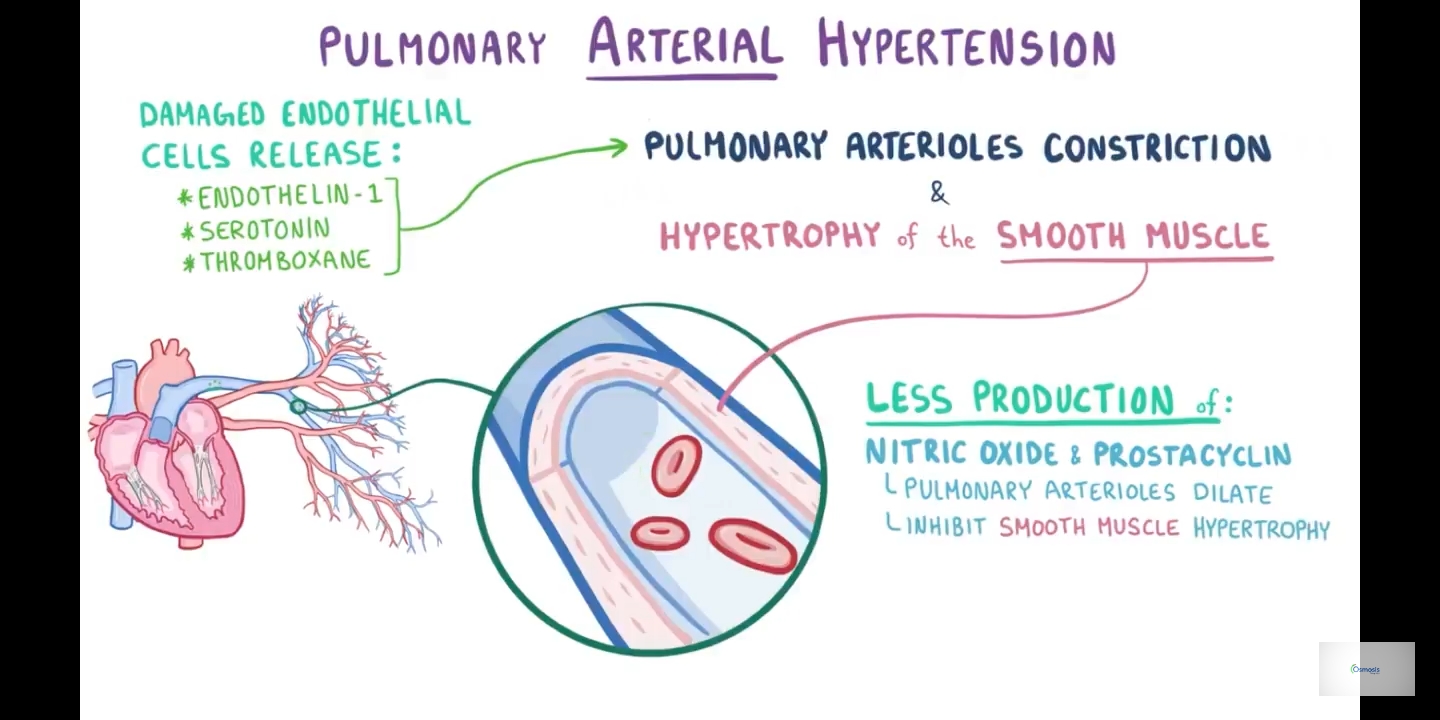 PULMONARY ARTERIAL HYPERTENSION
DAMAGED ENDOTHELIAL
CELLS RELEASE:
* ENDOTHELIN-1
* SEROTONIN
* THROMBOXANE
PULMONARY ARTERIOLES CONSTRICTION
&
HYPERTROPHY of the SMOOTH MUSCLE
LESS PRODUCTION of:
NITRIC OXIDE & PROSTACYCLIN
PULMONARY ARTERIOLES DILATE
INHIBIT SMOOTH MUSCLE HYPERTROPHY
Osmosis